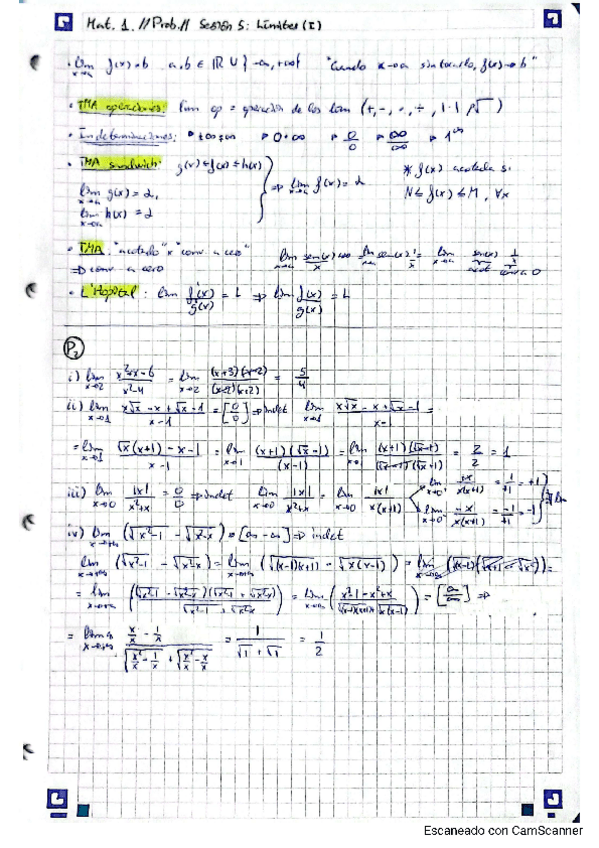 Mat. 1. // Prob. // Sesión 5: Límites (I)
· lim x→a f(x)=b a,b ∈ ℝ ∪ {-∞,+∞} "Cuando x→a sin tocarlo, f(x)→b"
· TMA operaciones: lim op = operación de los lim (+, -, ·, ÷,
· Indeterminaciones: ▸ ±∞±∞ ▸ 0·±∞ ▸ 0/0 ▸ ∞/∞ ▸ 1^∞
· TMA sandwich: g(x)≤f(x)≤h(x) * f(x) acotada si
lim x→a g(x)=2, ⇒ lim x→a f(x)=2 N≤f(x)≤M, ∀x
lim x→a h(x)=2
· TMA: "acotado" x "conv. a cero"
⇒ conv. a cero
· L'Hopital: lim f'(x)/g'(x) = L ⇒ lim f(x)/g(x) = L
P2
i) lim x→2 (x²+x-6)/(x²-4) = lim x→2 (x+3)(x-2)/(x-2)(x+2) = 5/4
ii) lim x→1 (x√x - x + √x - 1)/(x-1) = [0/0] ⇒ indet lim x→1 (x√x - x + √x - 1)/(x-1) =
= lim x→1 (√x(x+1) - x - 1)/(x-1) = lim x→1 (x+1)(√x-1)/(x-1) = lim x→1 (x+1)(√x-1)/(√x-1)(√x+1) = 2/2 = 1
iii) lim x→0 |x|/(x²+x) = 0/0 ⇒ indet lim x→0 |x|/(x²+x) = lim x→0 |x|/x(x+1) lim x→0⁺ +x/x(x+1) = 1/+1 = +1
lim x→0⁻ -x/x(x+1) = -1/+1 = -1
iv) lim x→+∞ (√(x²-1) - √(x²-x)) = [∞-∞] ⇒ indet
lim x→+∞ (√(x²-1) - √(x²-x)) = lim x→+∞ (√((x-1)(x+1)) - √(x(x-1))) =
= lim x→+∞ ((√(x²-1) - √(x²-x))(√(x²-1) + √(x²-x))/(√(x²-1) + √(x²-x))) = lim x→+∞ = [∞/∞] ⇒
= lim x→+∞ (x/x - 1/x)/(√(x²/x - 1/x) + √(x²/x - x/x)) = 1/(√1+√1) = 1/2
Escaneado con CamScanner